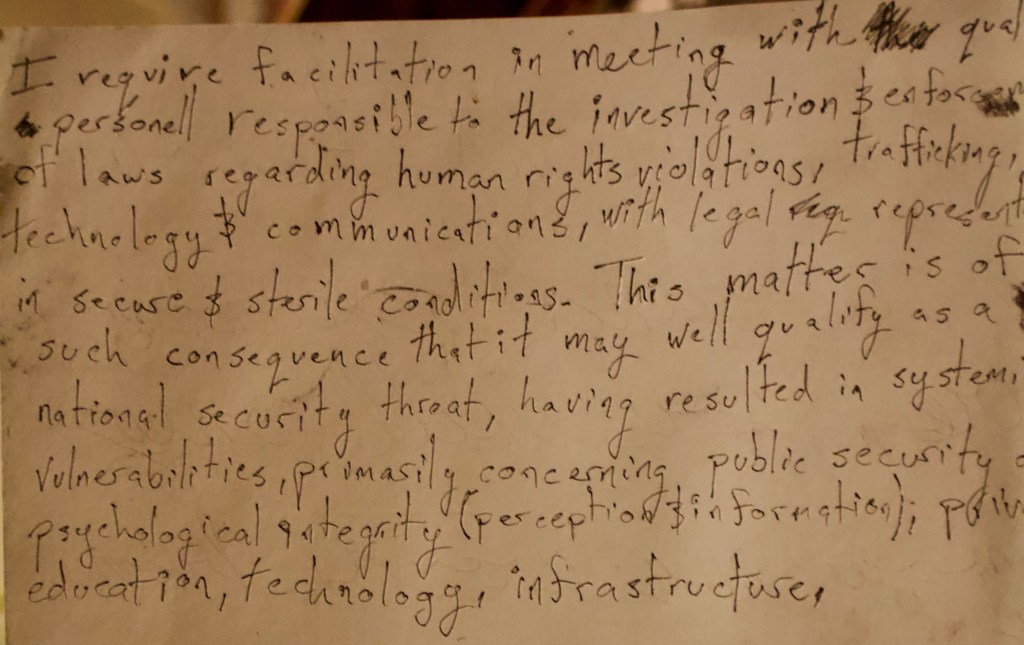 I require facilitation in meeting with qual
personell responsible to the investigation & enforcem
of laws regarding human rights violations, trafficking,
technology & communications, with legal represent
in secure & sterile conditions. This matter is of
such consequence that it may well qualify as a
national security threat, having resulted in systemi
vulnerabilities, primarily concerning public security
psychological integrity (perception & information); priv
education, technology, infrastructure,